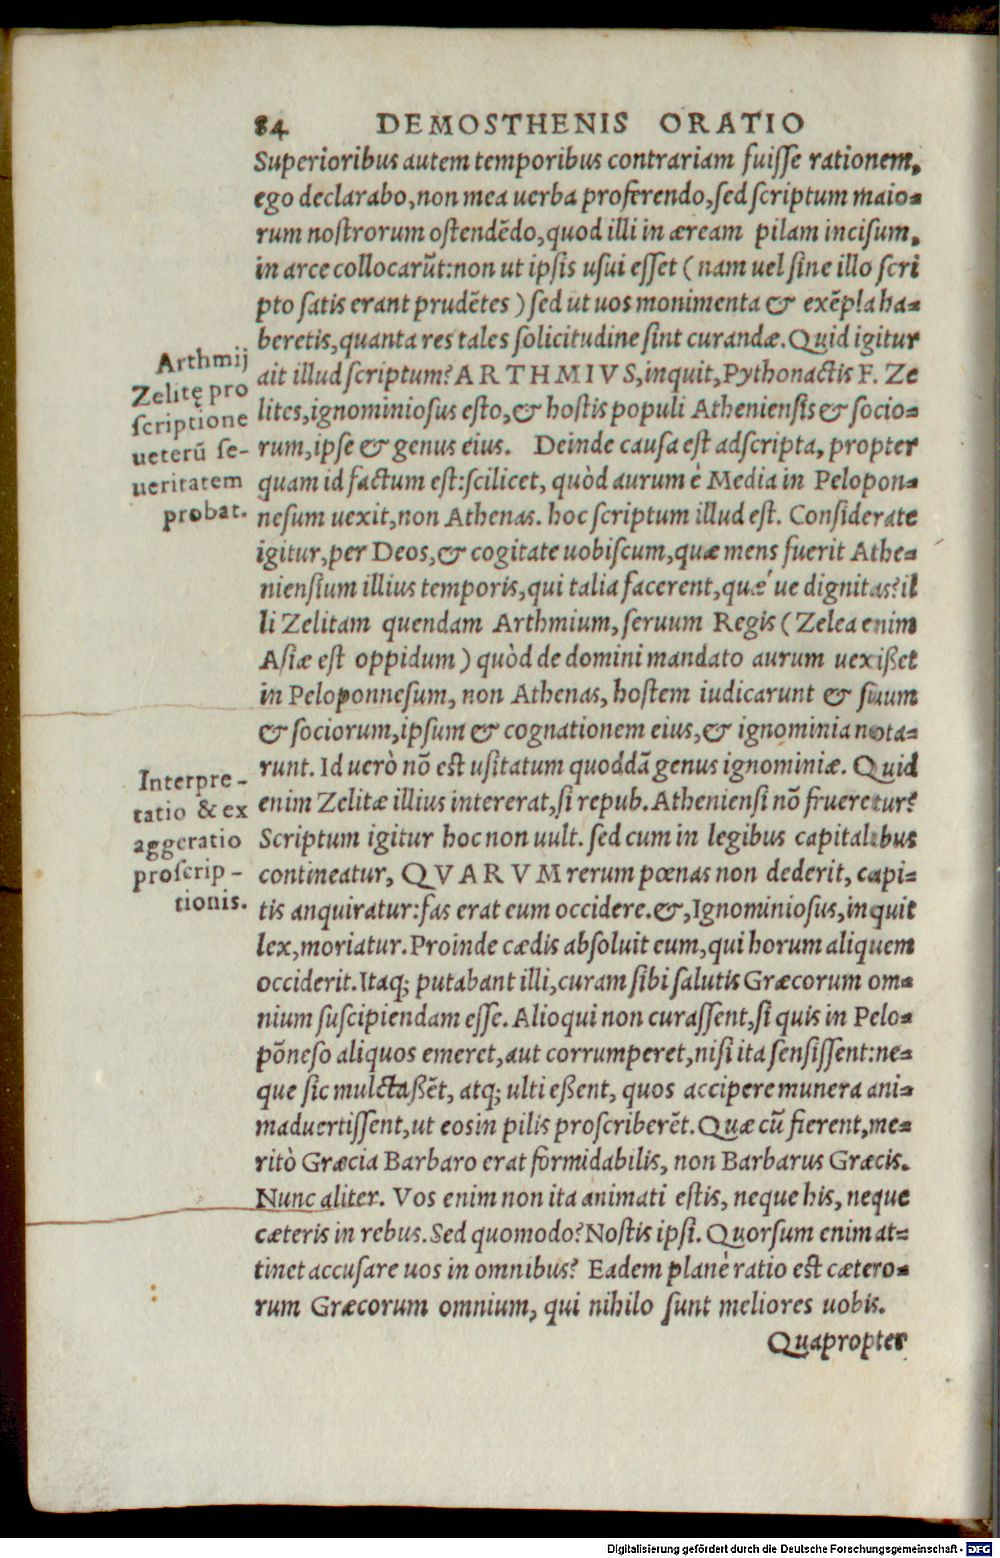 84 DEMOSTHENIS ORATIO
Superioribus autem temporibus contrariam fuiſſe rationem,
ego declarabo, non mea uerba proferendo, ſed ſcriptum maio=
rum noſtrorum oſtendẽdo, quod illi in æream pilam inciſum,
in arce collocarũt: non ut ipſis uſui eſſet ( nam uel ſine illo ſcri
pto ſatis erant prudẽtes ) ſed ut uos monimenta & exẽpla ha=
beretis, quanta res tales ſolicitudine ſint curandæ. Quid igitur
ait illud ſcriptum? ARTHMIVS, inquit, Pythonactis F. Ze
lites, ignominioſus eſto, & hoſtis populi Athenienſis & ſocio=
rum, ipſe & genus eius. Deinde cauſa eſt adſcripta, propter
quam id factum eſt: ſcilicet, quòd aurum è Media in Pelopon=
neſum uexit, non Athenas. hoc ſcriptum illud eſt. Conſiderate
igitur, per Deos, & cogitate uobiſcum, quæ mens fuerit Athe=
nienſium illius temporis, qui talia facerent, quæ´ ue dignitas? il
li Zelitam quendam Arthmium, ſeruum Regis ( Zelea enim
Aſiæ eſt oppidum ) quòd de domini mandato aurum uexißet
in Peloponneſum, non Athenas, hoſtem iudicarunt & ſuum
& ſociorum, ipſum & cognationem eius, & ignominia nota=
runt. Id uerò nõ eſt uſitatum quoddã genus ignominiæ. Quid
enim Zelitæ illius intererat, ſi repub. Athenienſi nõ frueretur?
Scriptum igitur hoc non uult. ſed cum in legibus capitalibus
contineatur, QVARVM rerum pœnas non dederit, capi=
tis anquiratur: fas erat eum occidere. &, Ignominioſus, inquit
lex, moriatur. Proinde cædis abſoluit eum, qui horum aliquem
occiderit. Itaq; putabant illi, curam ſibi ſalutis Græcorum om=
nium ſuſcipiendam eſſe. Alioqui non curaſſent, ſi quis in Pelo=
põneſo aliquos emeret, aut corrumperet, niſi ita ſenſiſſent: ne=
que ſic mulctaßẽt, atq; ulti eßent, quos accipere munera ani=
maduertiſſent, ut eos in pilis proſcriberẽt. Quæ cũ fierent, me=
ritò Græcia Barbaro erat formidabilis, non Barbarus Græcis.
Nunc aliter. Vos enim non ita animati eſtis, neque his, neque
cæteris in rebus. Sed quomodo? Noſtis ipſi. Quorſum enim at=
tinet accuſare uos in omnibus? Eadem planè ratio eſt cætero=
rum Græcorum omnium, qui nihilo ſunt meliores uobis.
Quapropter
Arthmij
Zelitę pro
ſcriptione
ueterũ ſe-
ueritatem
probat.
Interpre-
tatio & ex
aggeratio
proſcrip-
tionis.
Digitalisierung gefördert durch die Deutsche Forschungsgemeinschaft - DFG